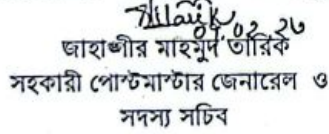 জাহাঙ্গীর মাহমুদ তারিক
সহকারী পোস্টমাস্টার জেনারেল ও
সদস্য সচিব